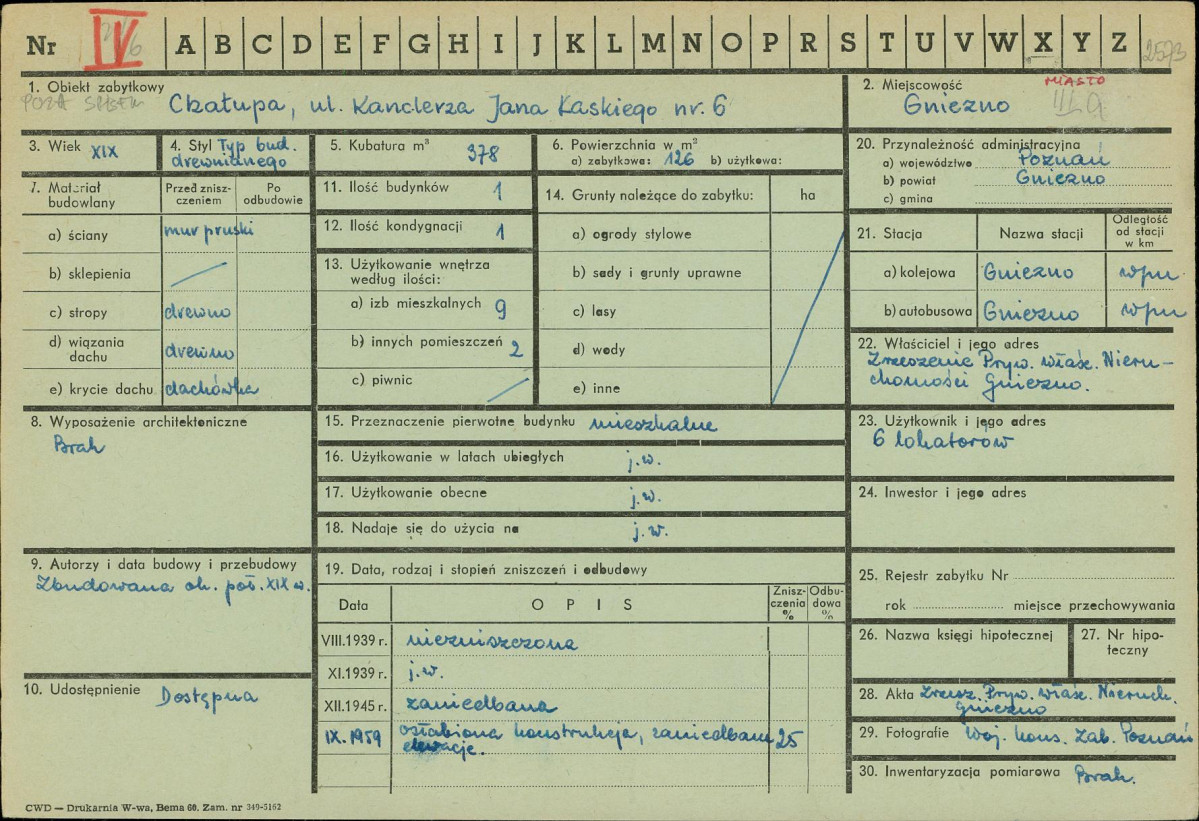 Nr IV A B C D E F G H I J K L M N O P R S T U V W X Y Z 2573
1. Obiekt zabytkowy
POZA SPISEM
Chałupa, ul. Kanclerza Jana Łaskiego nr. 6
2. Miejscowość MIASTO
Gniezno
3. Wiek XIX
4. Styl Typ bud.
drewnianego
5. Kubatura m³ 378
6. Powierzchnia w m²
a) zabytkowa: 126 b) użytkowa:
20. Przynależność administracyjna
a) województwo Poznań
b) powiat Gniezno
c) gmina
7. Materiał
budowlany
Przed znisz-
czeniem
Po
odbudowie
a) ściany mur pruski
b) sklepienia
c) stropy drewno
d) wiązania
dachu drewno
e) krycie dachu dachówka
11. Ilość budynków 1
12. Ilość kondygnacji 1
13. Użytkowanie wnętrza
według ilości:
a) izb mieszkalnych 9
b) innych pomieszczeń 2
c) piwnic
14. Grunty należące do zabytku: ha
a) ogrody stylowe
b) sady i grunty uprawne
c) lasy
d) wody
e) inne
21. Stacja Nazwa stacji
Odległość
od stacji
w km
a) kolejowa Gniezno wpm
b) autobusowa Gniezno wpm
22. Właściciel i jego adres
Zrzeszenie Pryw. właśc. Nieru-
chomości Gniezno.
8. Wyposażenie architektoniczne
Brak
15. Przeznaczenie pierwotne budynku mieszkalne
16. Użytkowanie w latach ubiegłych j.w.
17. Użytkowanie obecne j.w.
18. Nadaje się do użycia na j.w.
23. Użytkownik i jego adres
6 lokatorów
24. Inwestor i jego adres
9. Autorzy i data budowy i przebudowy
Zbudowana ok. poł. XIX w.
10. Udostępnienie Dostępna
19. Data, rodzaj i stopień zniszczeń i odbudowy
Data OPIS
Znisz-
czenia
%
Odbu-
dowa
%
VIII.1939 r. niezniszczona
XI.1939 r. j.w.
XII.1945 r. zaniedbana
IX.1959 osłabiona konstrukcja, zaniedbane 25
elewacje.
25. Rejestr zabytku Nr
rok miejsce przechowywania
26. Nazwa księgi hipotecznej
27. Nr hipo-
teczny
28. Akta Zrzesz. Pryw. właśc. Nieruch.
Gniezno
29. Fotografie Woj. kons. Zab. Poznań
30. Inwentaryzacja pomiarowa Brak.
CWD — Drukarnia W-wa, Bema 60. Zam. nr 349-5162